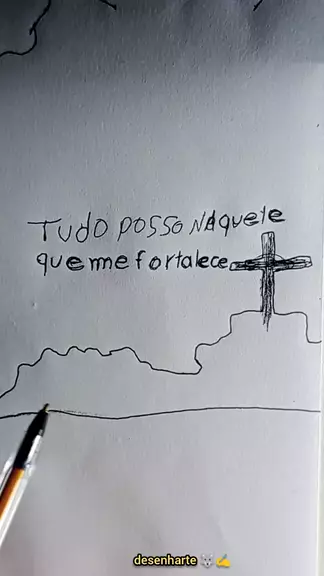 TUDO POSSO NAquele
que me fortalece
desenharte 🐺✍️